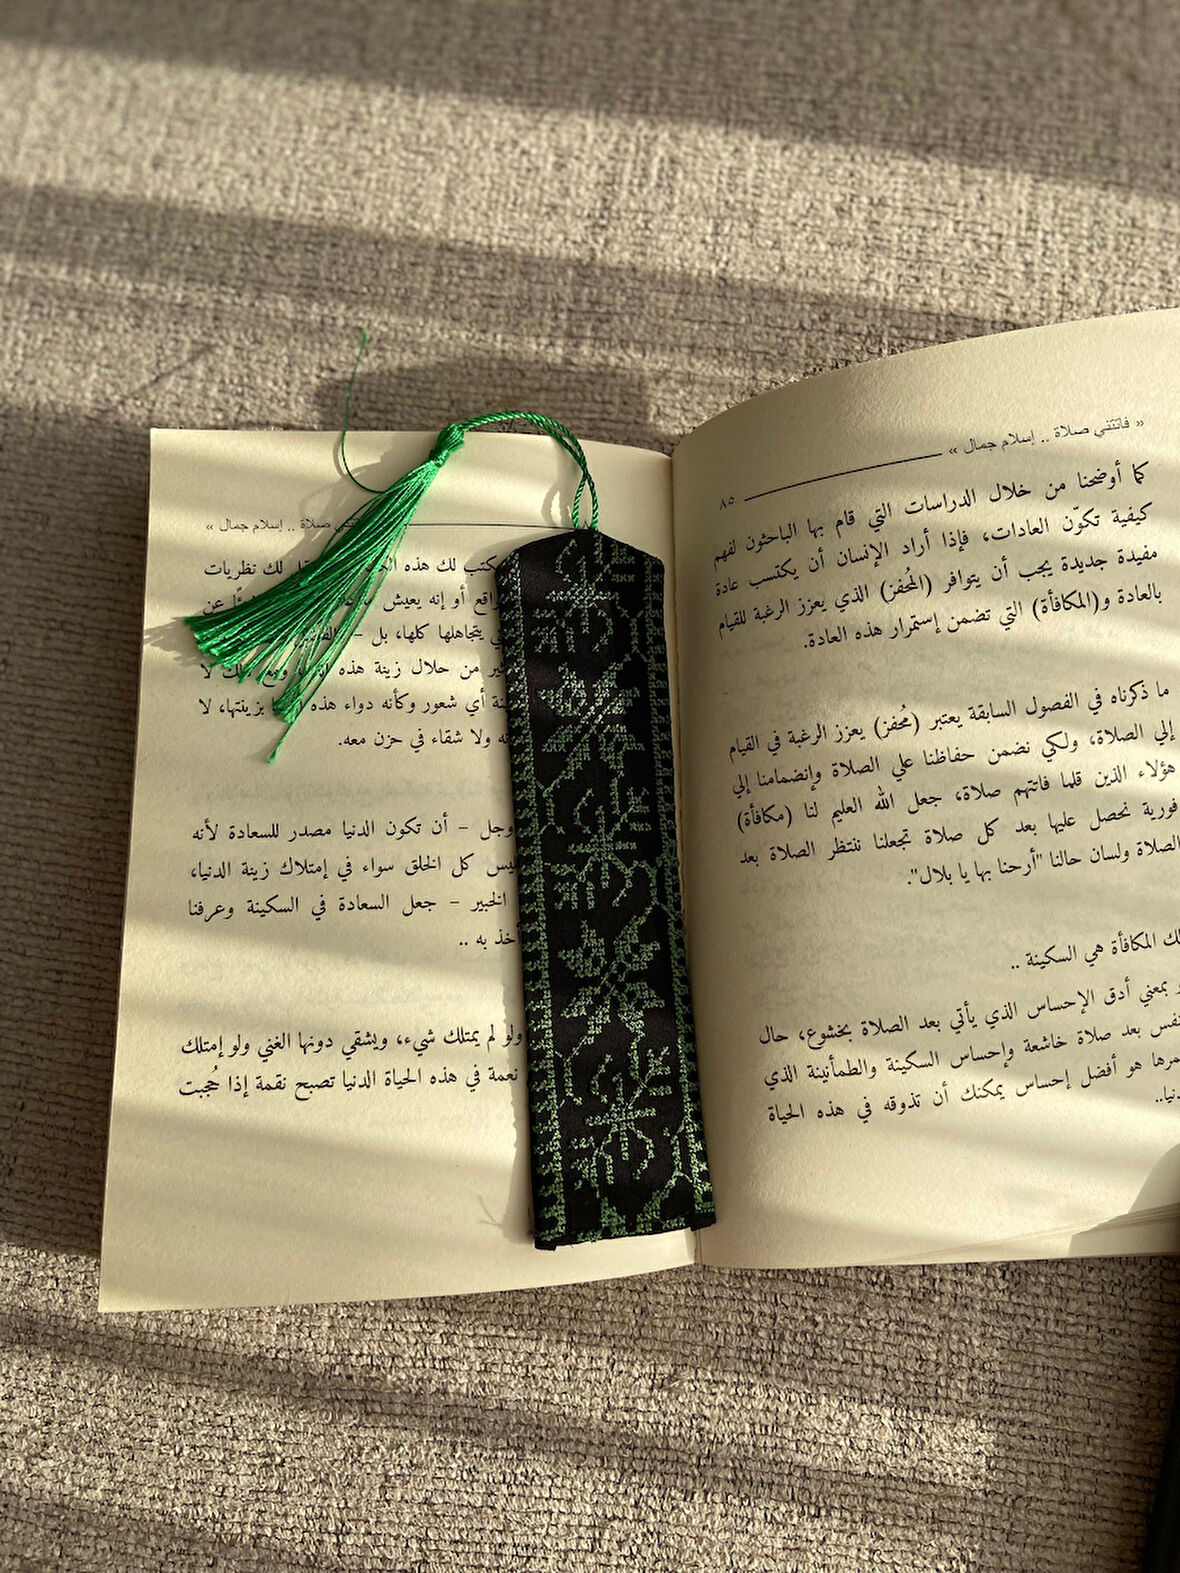 « فاتتني صلاة .. إسلام جمال »
٨٥
كما أوضحنا من خلال الدراسات التي قام بها الباحثون لفهم
كيفية تكوّن العادات، فإذا أراد الإنسان أن يكتسب عادة
مفيدة جديدة يجب أن يتوافر (المُحفز) الذي يعزز الرغبة للقيام
بالعادة و(المكافأة) التي تضمن إستمرار هذه العادة.
ما ذكرناه في الفصول السابقة يعتبر (مُحفز) يعزز الرغبة في القيام
إلي الصلاة، ولكي نضمن حفاظنا علي الصلاة وإنضمامنا إلي
هؤلاء الذين قلما فاتتهم صلاة، جعل الله العليم لنا (مكافأة)
فورية نحصل عليها بعد كل صلاة تجعلنا ننتظر الصلاة بعد
الصلاة ولسان حالنا "أرحنا بها يا بلال".
المكافأة هي السكينة ..
بمعني أدق الإحساس الذي يأتي بعد الصلاة بخشوع، حال
بعد صلاة خاشعة وإحساس السكينة والطمأنينة الذي
هو أفضل إحساس يمكنك أن تذوقه في هذه الحياة
صلاة .. إسلام جمال »
لك هذه لك نظريات
أو إنه يعيش عن
يتجاهلها كلها، بل –
من خلال زينة هذه لا
أي شعور وكأنه دواء هذه بزينتها، لا
ولا شقاء في حزن معه.
وجل – أن تكون الدنيا مصدر للسعادة لأنه
ليس كل الخلق سواء في إمتلاك زينة الدنيا،
الخبير – جعل السعادة في السكينة وعرفنا
به ..
ولو لم يمتلك شيء، ويشقي دونها الغني ولو إمتلك
نعمة في هذه الحياة الدنيا تصبح نقمة إذا حُجبت